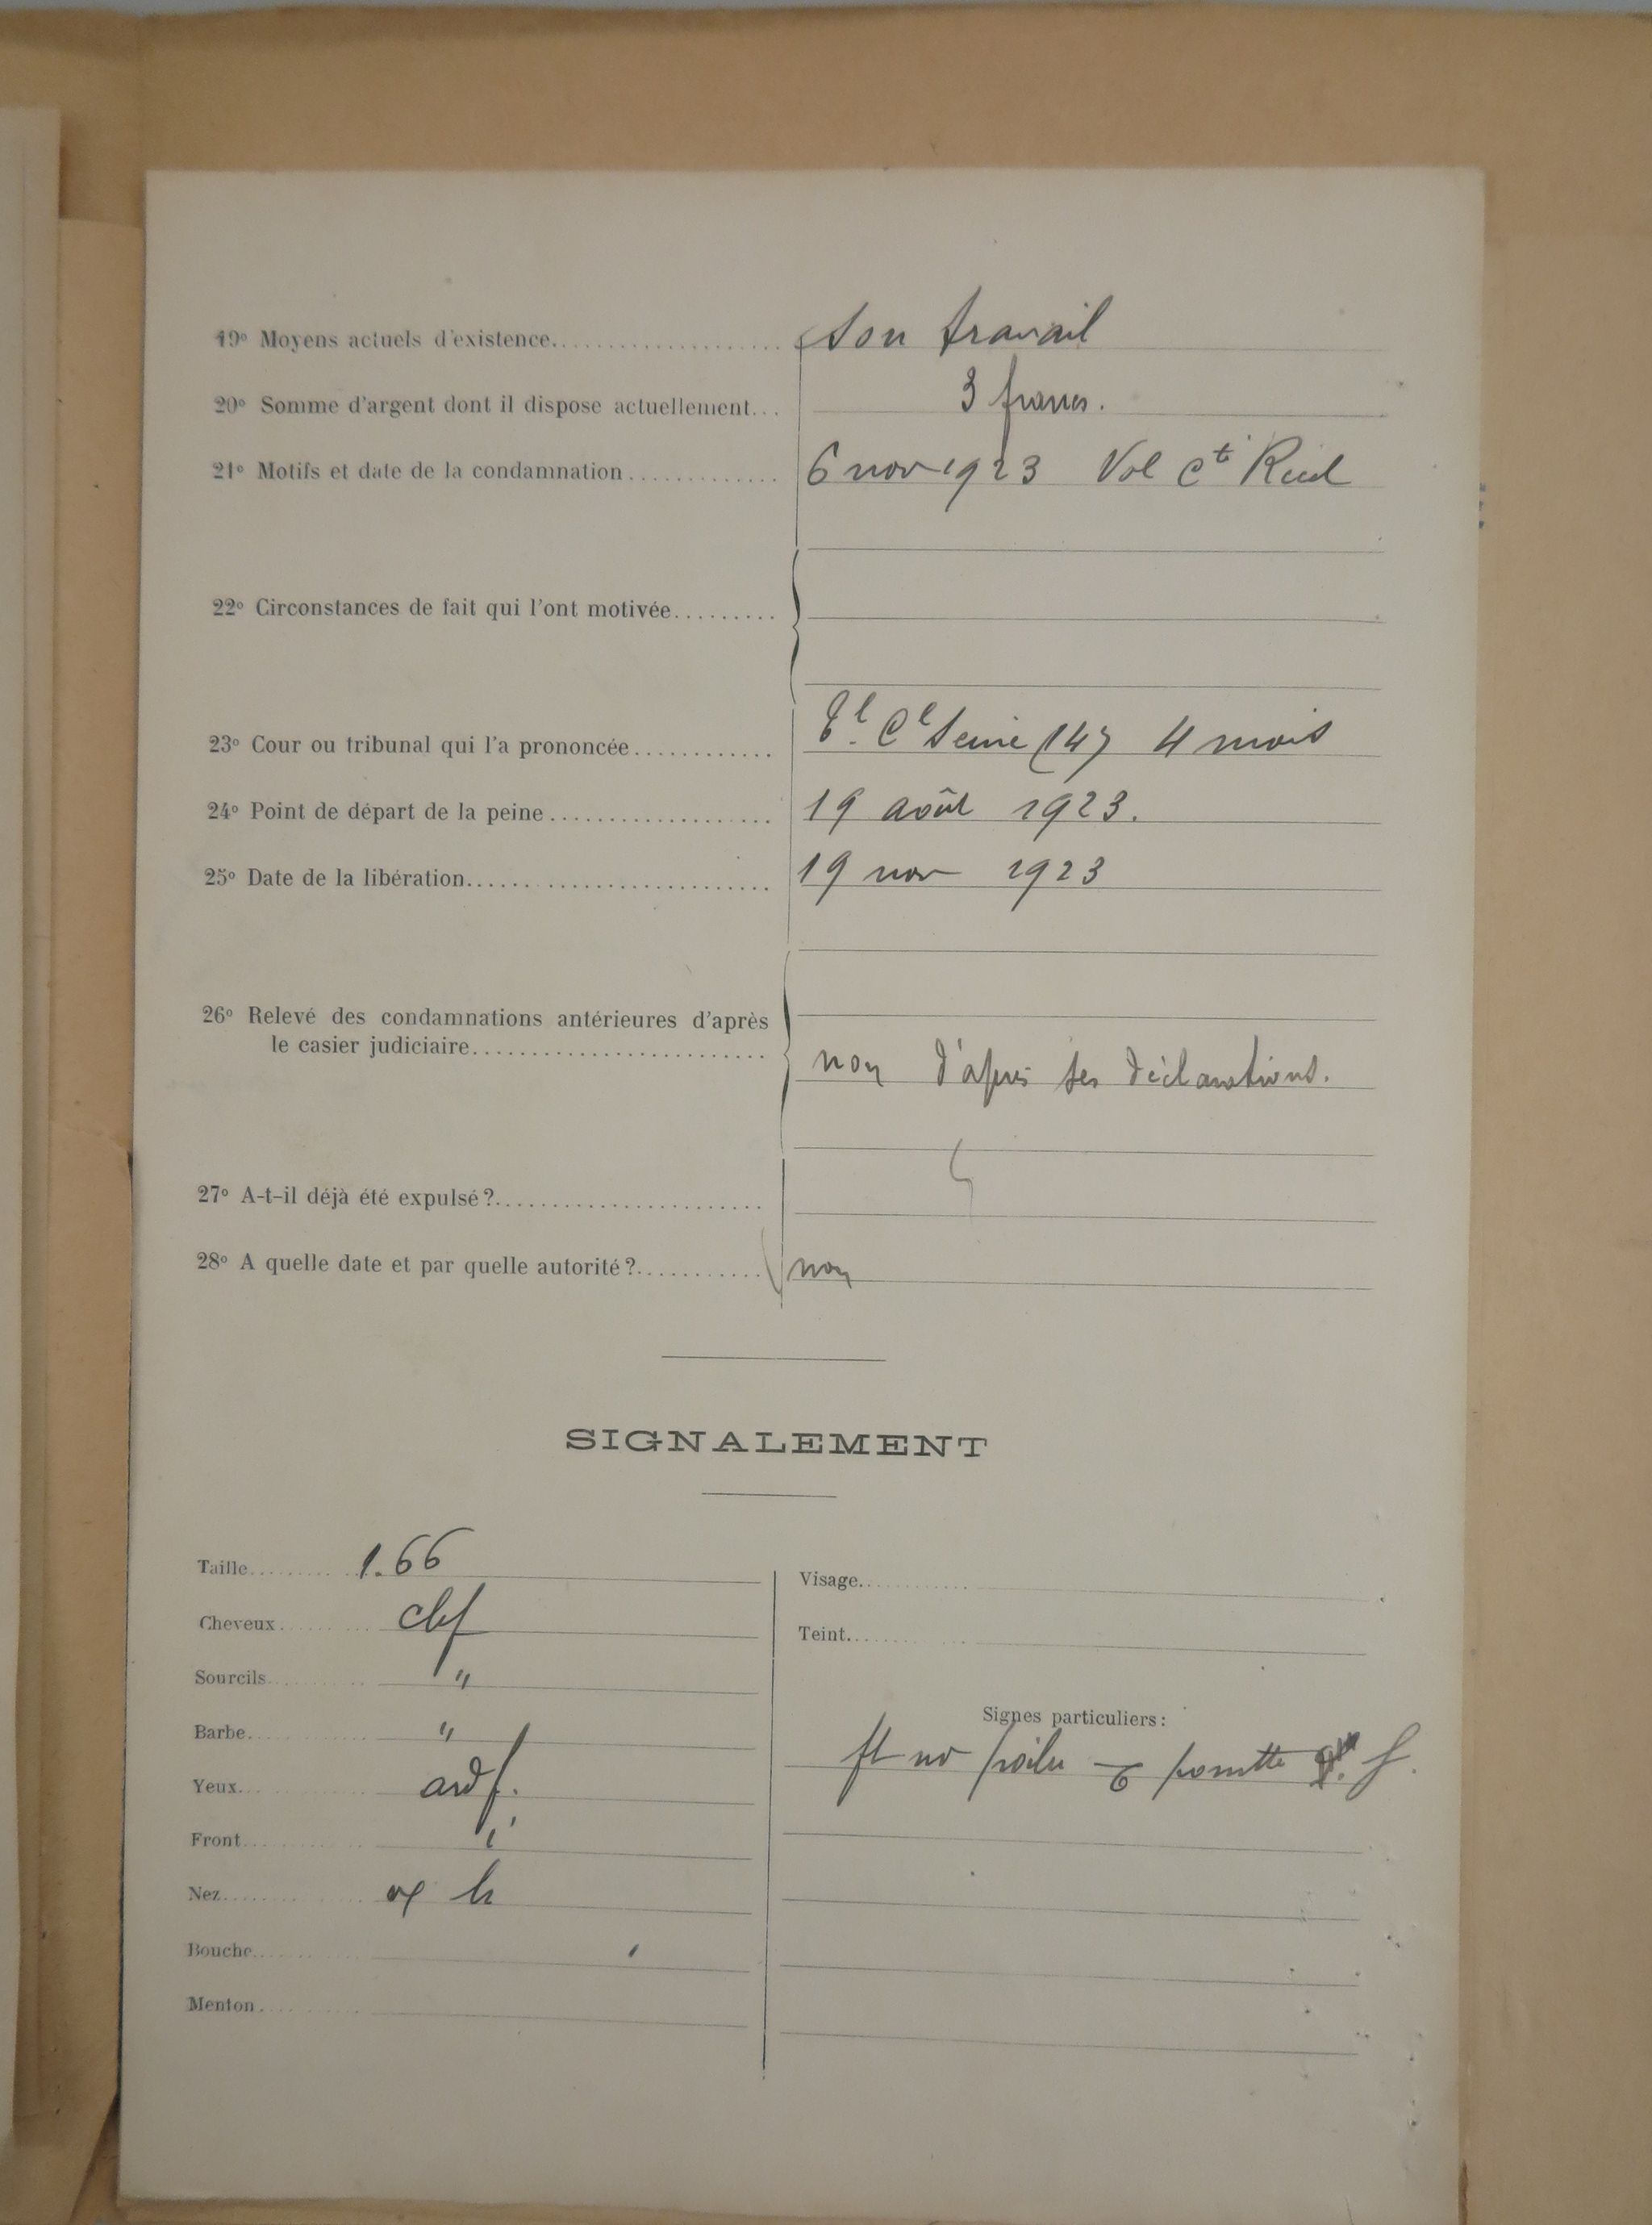 19° Moyens actuels d'existence.................... son travail
20° Somme d'argent dont il dispose actuellement... 3 francs.
21° Motifs et date de la condamnation............. 6 nov 1923 Vol Ct
22° Circonstances de fait qui l'ont motivée.........
23° Cour ou tribunal qui l'a prononcée............ Tl. Cl Seine (14) 4 mois
24° Point de départ de la peine................... 19 août 1923.
25° Date de la libération........................... 19 nov 1923
26° Relevé des condamnations antérieures d'après
le casier judiciaire......................... non d'après ses déclarations.
27° A-t-il déjà été expulsé?.......................
28° A quelle date et par quelle autorité?........... non
SIGNALEMENT
Taille......... 1.66
Cheveux.........
Sourcils......... "
Barbe......... "
Yeux.........
Front.........
Nez.........
Bouche.........
Menton.........
Visage............
Teint............
Signes particuliers:
poilu